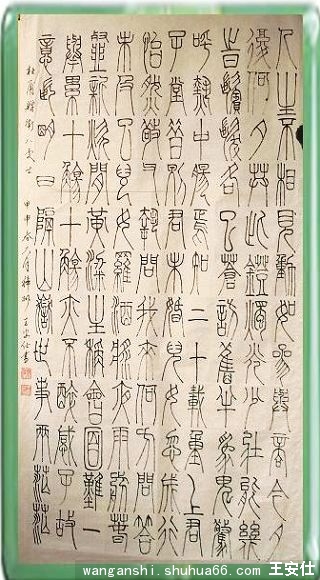 人生不相見動如參與商今夕
復何夕共此燈燭光少壯能幾
時鬢髮各已蒼訪舊半為鬼驚
呼熱中腸焉知二十載重上君
子堂昔別君未婚兒女忽成行
怡然敬父執問我來何方問答
未及已兒女羅酒漿夜雨翦春
韭新炊間黃粱主稱會面難一
舉累十觴十觴亦不醉感子故
意長明日隔山嶽世事兩茫茫
杜甫贈衛八處士 甲申 月 王安仕書
wanganshi.shuhua66.com 王安仕